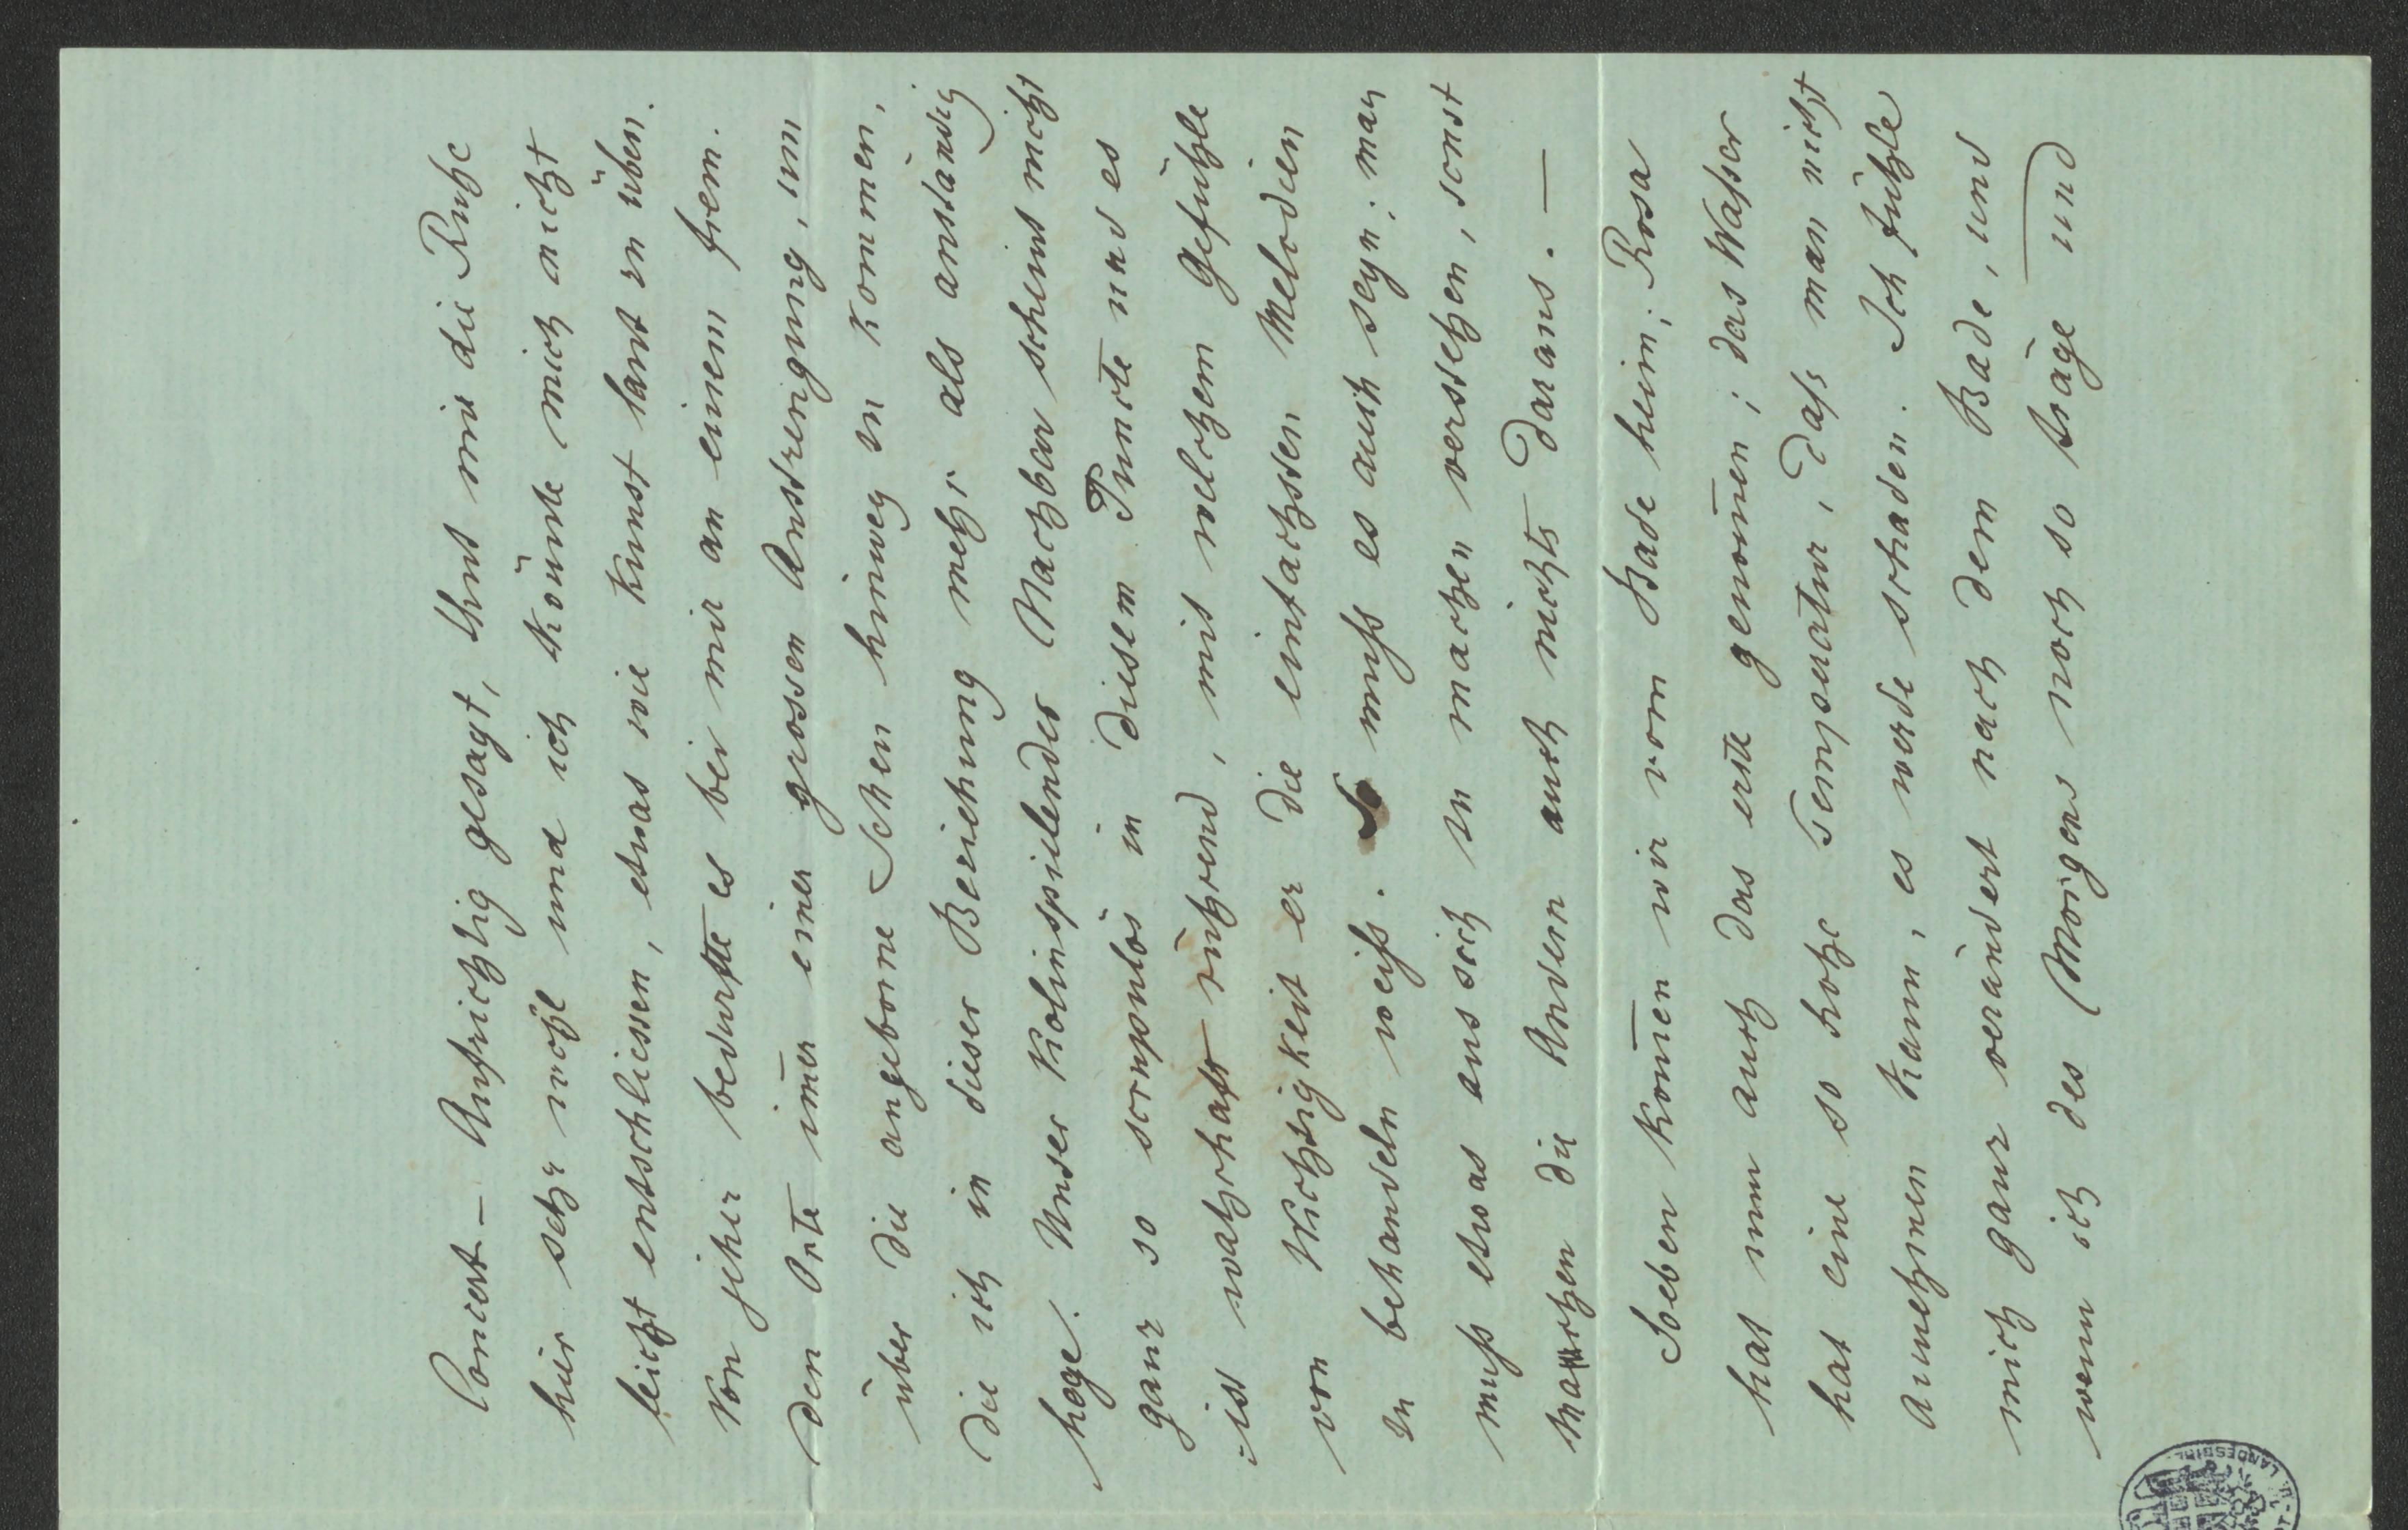 Concert – Aufrichtig gesagt, thut mir die Ruhe
hier sehr wohl und ich könnte mich nicht
leicht entschliessen, etwas wie Kunst laut zu üben.
Von jeher bedurfte es bei mir an einem frem-
den Orte im̄er einer grossen Anstrengung, um
über die angeborne Scheu hinweg zu kommen,
die ich in dieser Beziehung mehr als anständig
hege. Unser Violinspielender Nachbar scheint nicht
ganz so scrupulös in diesem Puncte und es
ist wahrhaft rührend, mit welchem Gefühle
von Wichtigkeit er die einfachsten Melodien
zu behandeln weiß. So muß es auch seyn; man
muß etwas aus sich zu machen verstehen, sonst
machen die Andern auch nichts daraus. –
Soeben kom̄en wir vom Bade heim; Rosa
hat nun auch das erste genom̄en; das Waßer
hat eine so hohe Temperatur, daß man nicht
annehmen kann, es werde schaden. Ich fühle
mich ganz verändert nach dem Bade, und
wenn ich des Morgens noch so träge und
LANDESBIBL